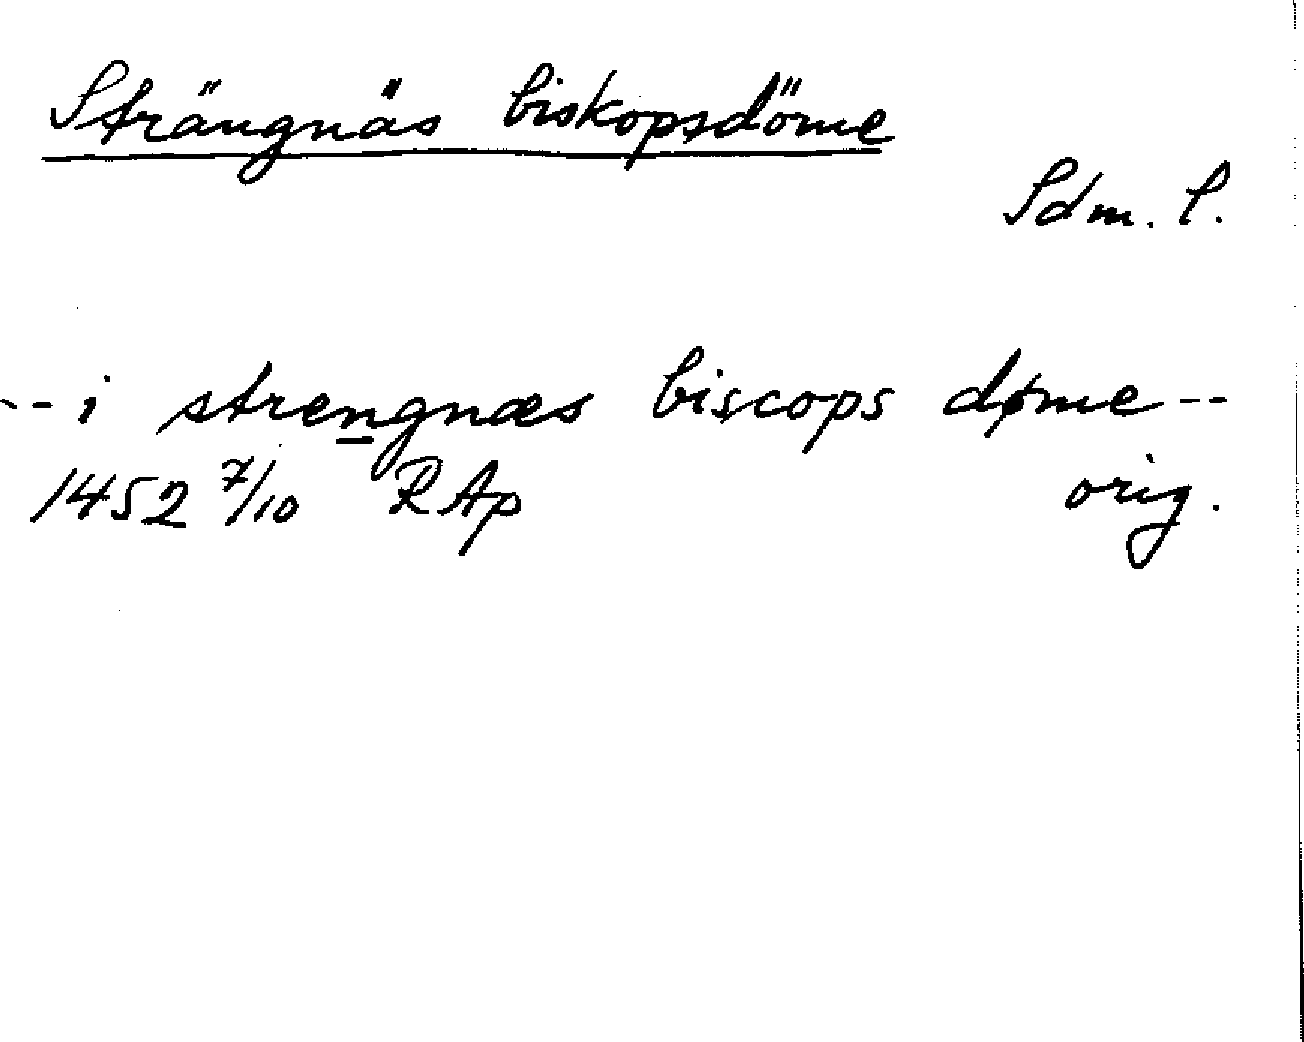 Strängnäs biskopsdöme
Sdm. l.
-- i strengnæs biscops døme --
1452 7/10 RAp orig.